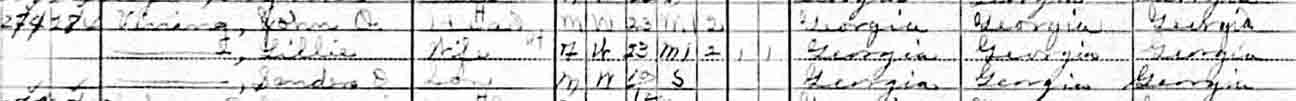 274 Vining, John O. Head M W 23 M1 2 Georgia Georgia Georgia
——, Lillie Wife F W 23 M1 2 1 1 Georgia Georgia Georgia
——, Sanders O Son M W S Georgia Georgia Georgia